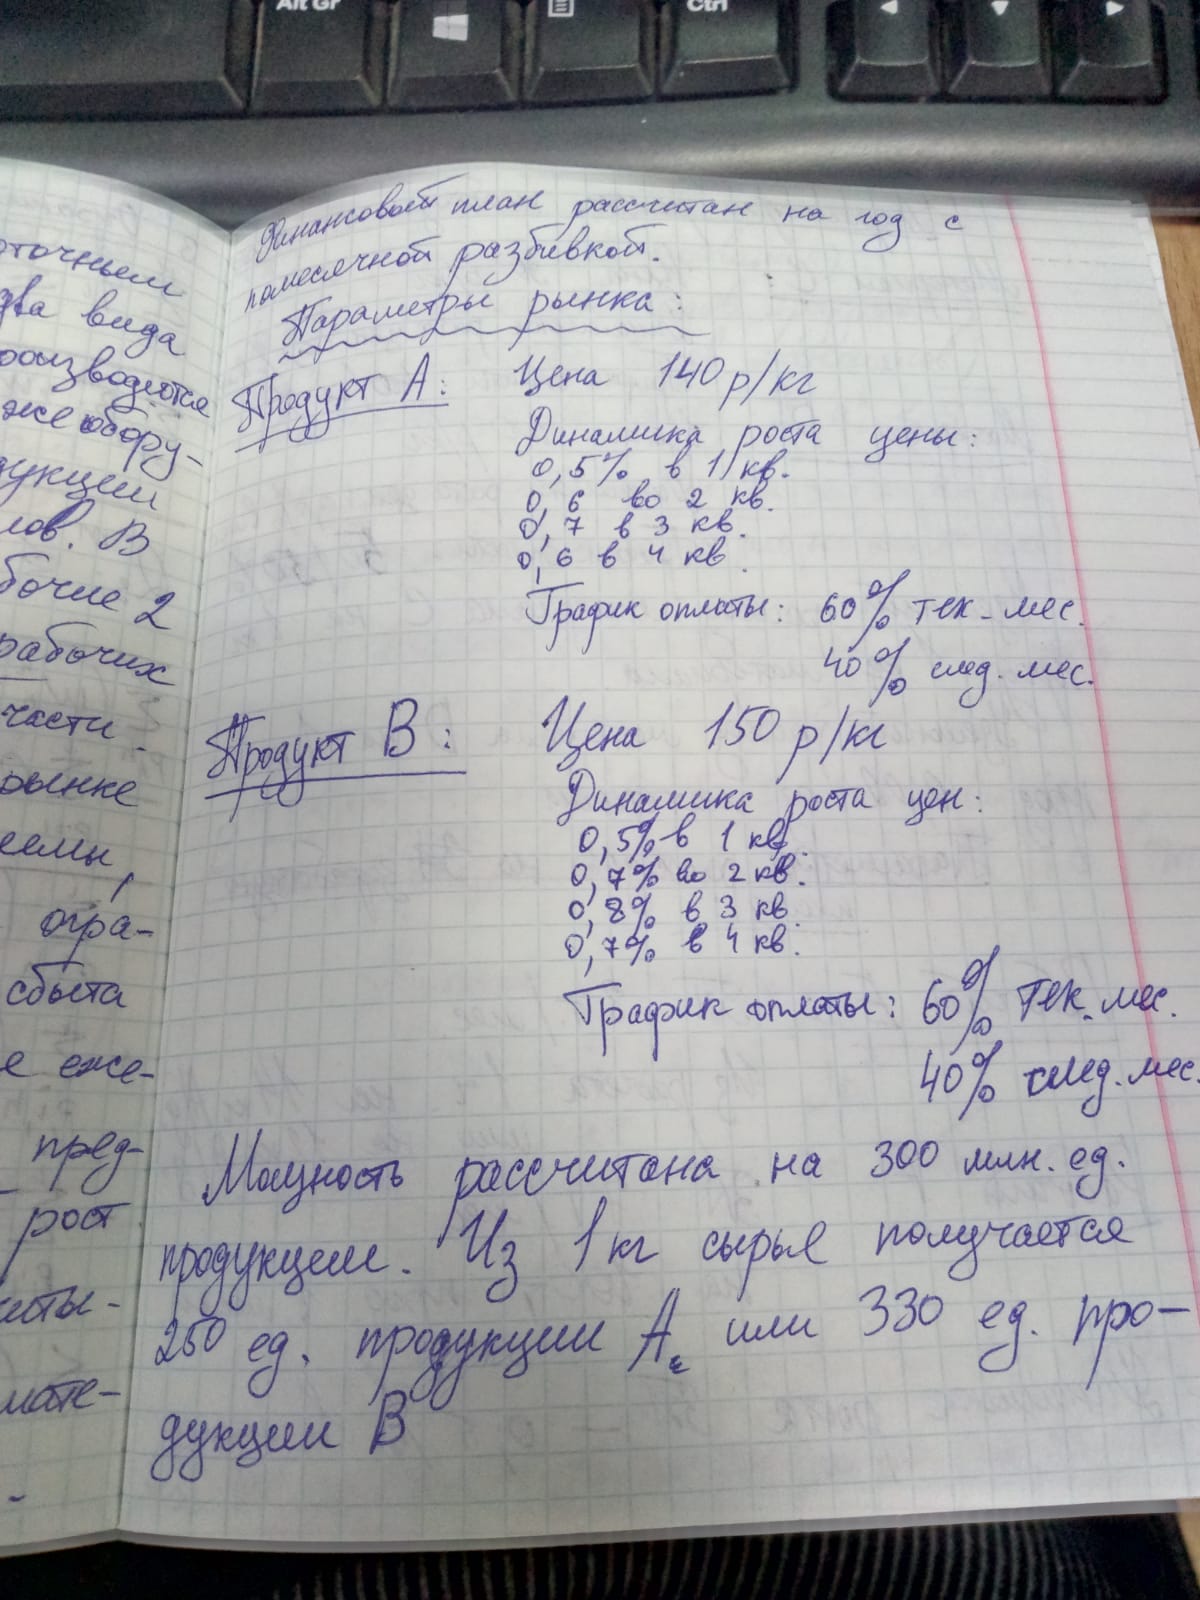 Alt Gr
Ctrl
два вида
же обору-
лов. В
рабочих
части.
рынке
огра-
сбыта
е еже-
пред-
рост
мате-
Финансовый план рассчитан на год с
помесячной разбивкой.
Параметры рынка:
Продукт А: Цена 140 р/кг
Динамика роста цены:
0,5% в 1 кв.
0,6 во 2 кв.
0,7 в 3 кв.
0,6 в 4 кв
График оплаты: 60% тек. мес.
40% след. мес.
Продукт В: Цена 150 р/кг
Динамика роста цен:
0,5% в 1 кв.
0,7% во 2 кв.
0,8% в 3 кв
0,7% в 4 кв.
График оплаты: 60% тек. мес.
40% след. мес.
Мощность рассчитана на 300 млн. ед.
продукции. Из 1 кг сырья получается
250 ед. продукции А или 330 ед. про-
дукции В